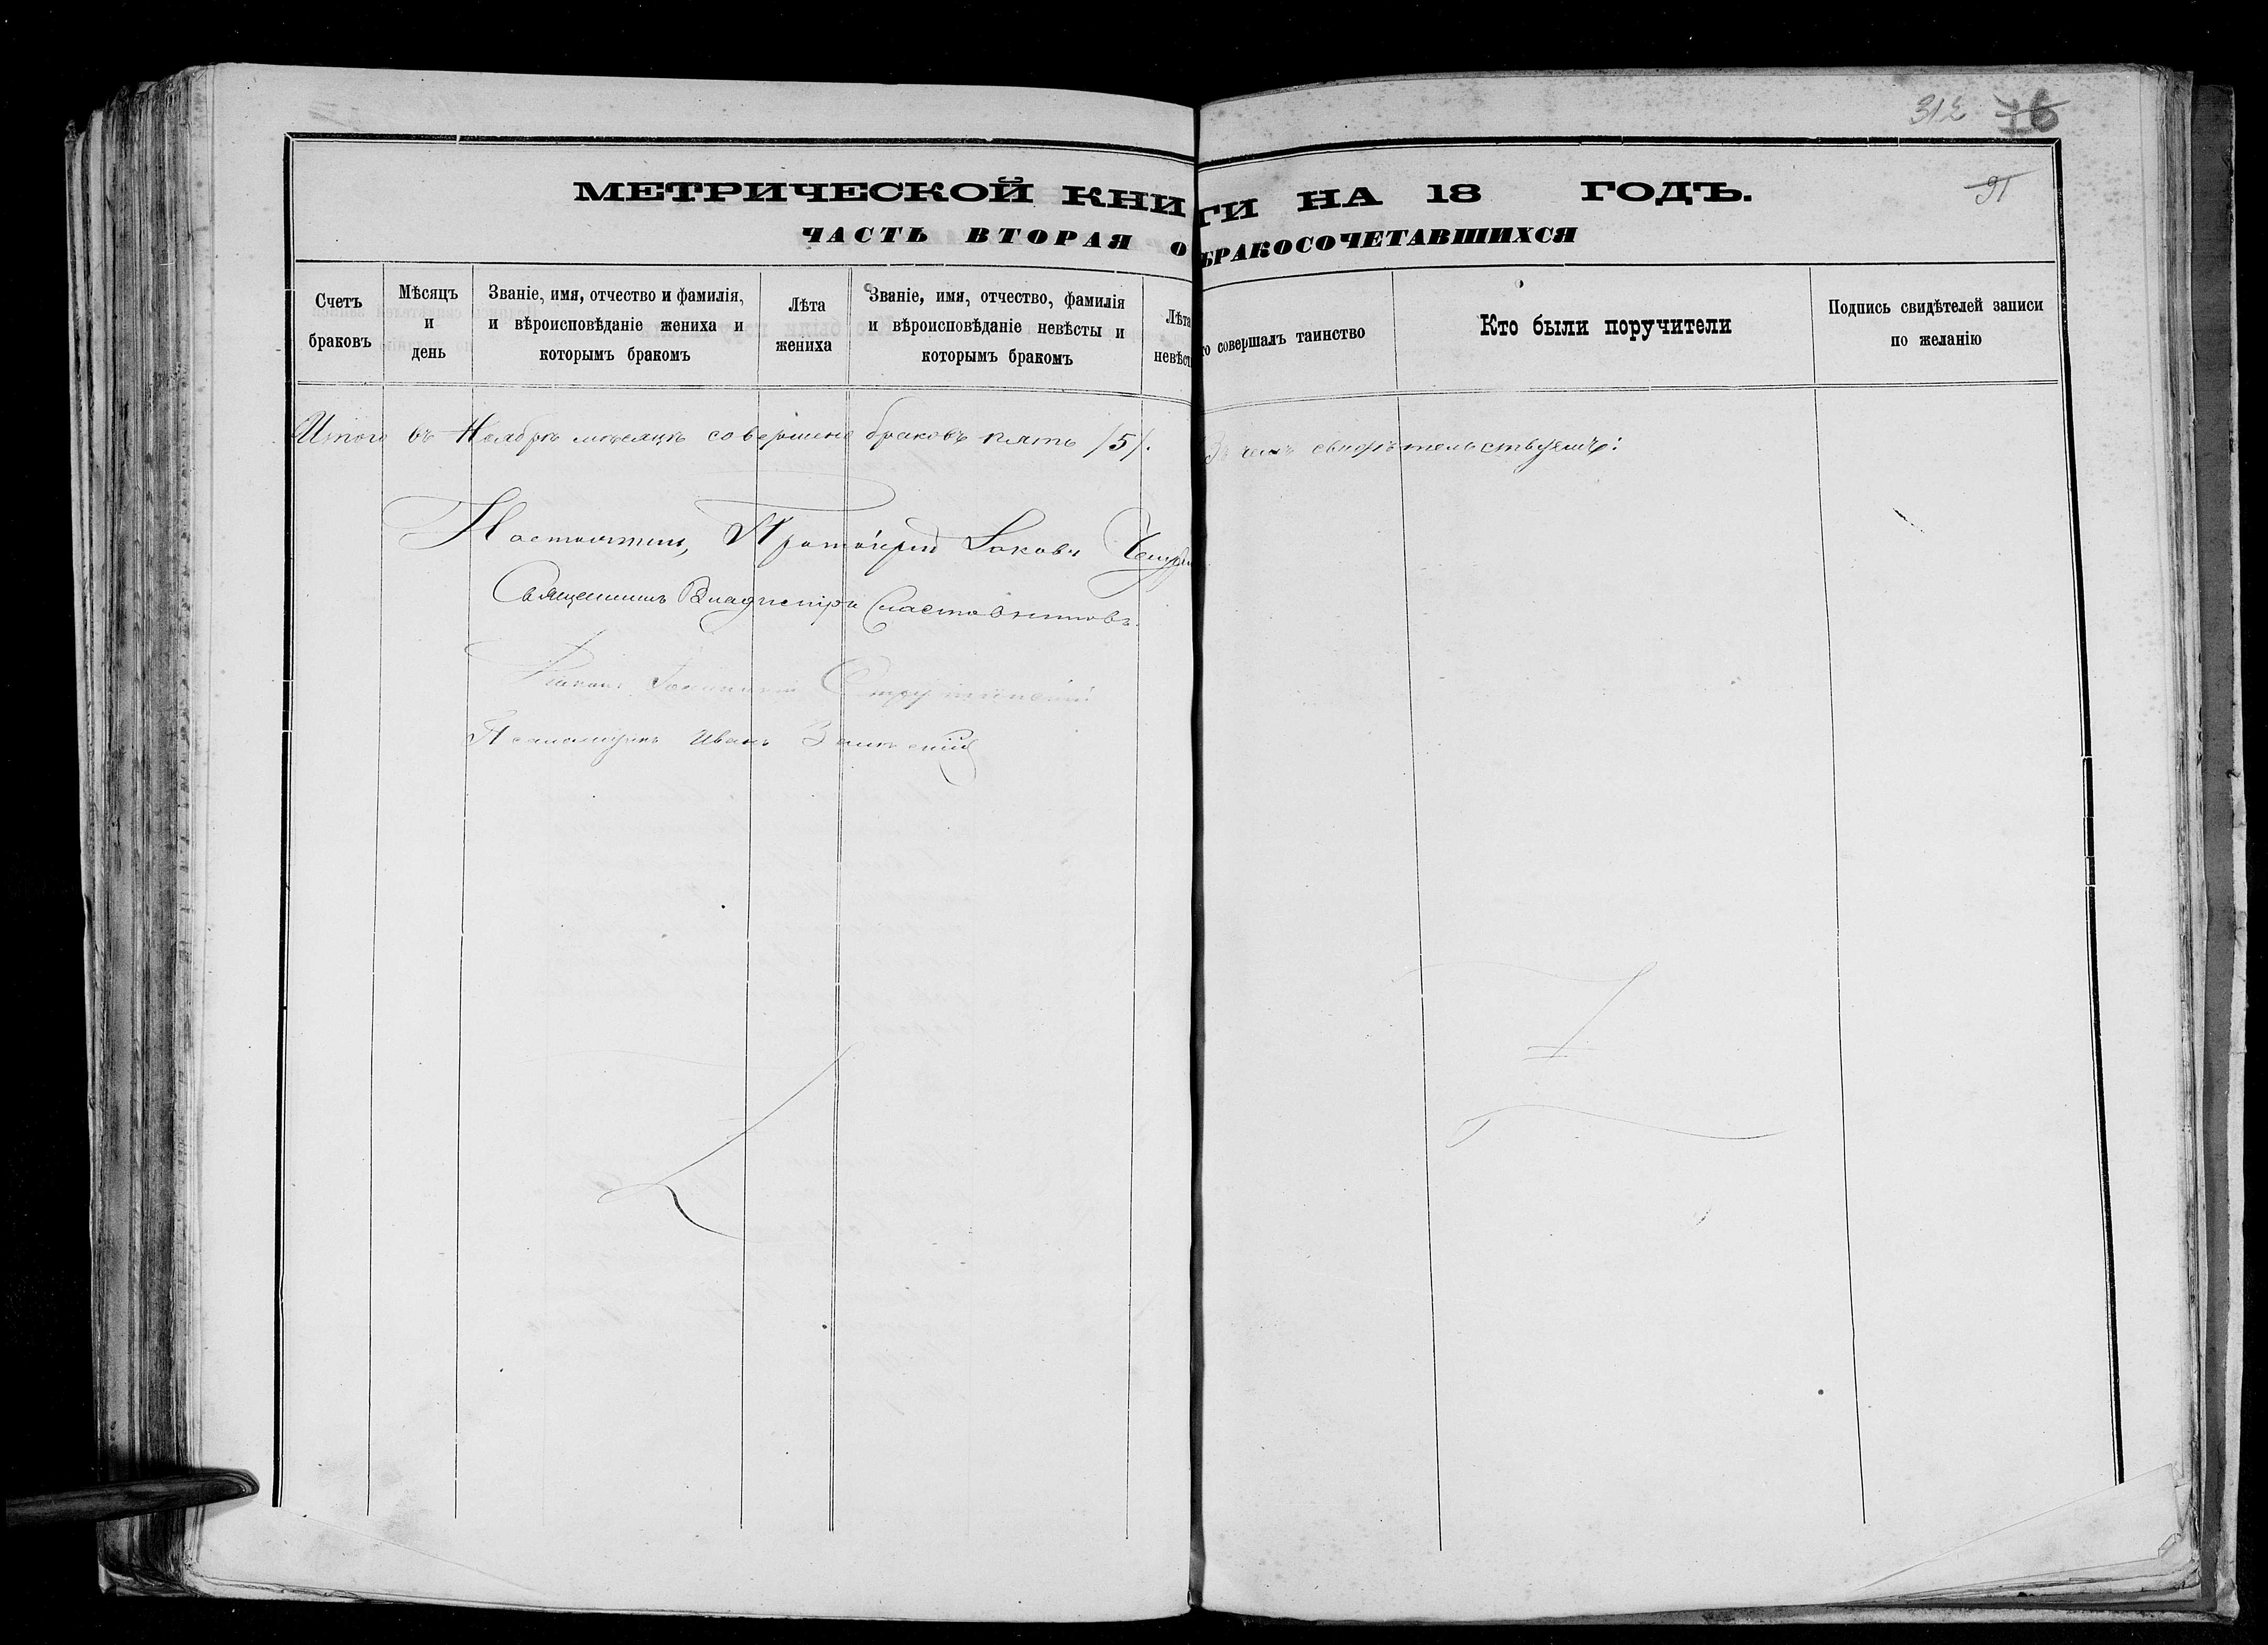 312 76
91
МЕТРИЧЕСКОЙ КНИГИ НА 18 ГОДЪ.
ЧАСТЬ ВТОРАЯ О БРАКОСОЧЕТАВШИХСЯ
Счетъ браковъ
Мѣсяцъ и день
Званіе, имя, отчество и фамилія, и вѣроисповѣданіе жениха и которымъ бракомъ
Лѣта жениха
Званіе, имя, отчество, фамилія и вѣроисповѣданіе невѣсты и которымъ бракомъ
Лѣта невѣст
го совершалъ таинство
Кто были поручители
Подпись свидѣтелей записи по желанію
Итого въ Ноябрѣ мѣсяцѣ совершено браковъ пять /5/. Въ чемъ свидѣтельствуемъ:
Настоятель, Протоіерей Іаковъ
Священникъ Владиміръ
Діаконъ
Псаломщикъ Иванъ